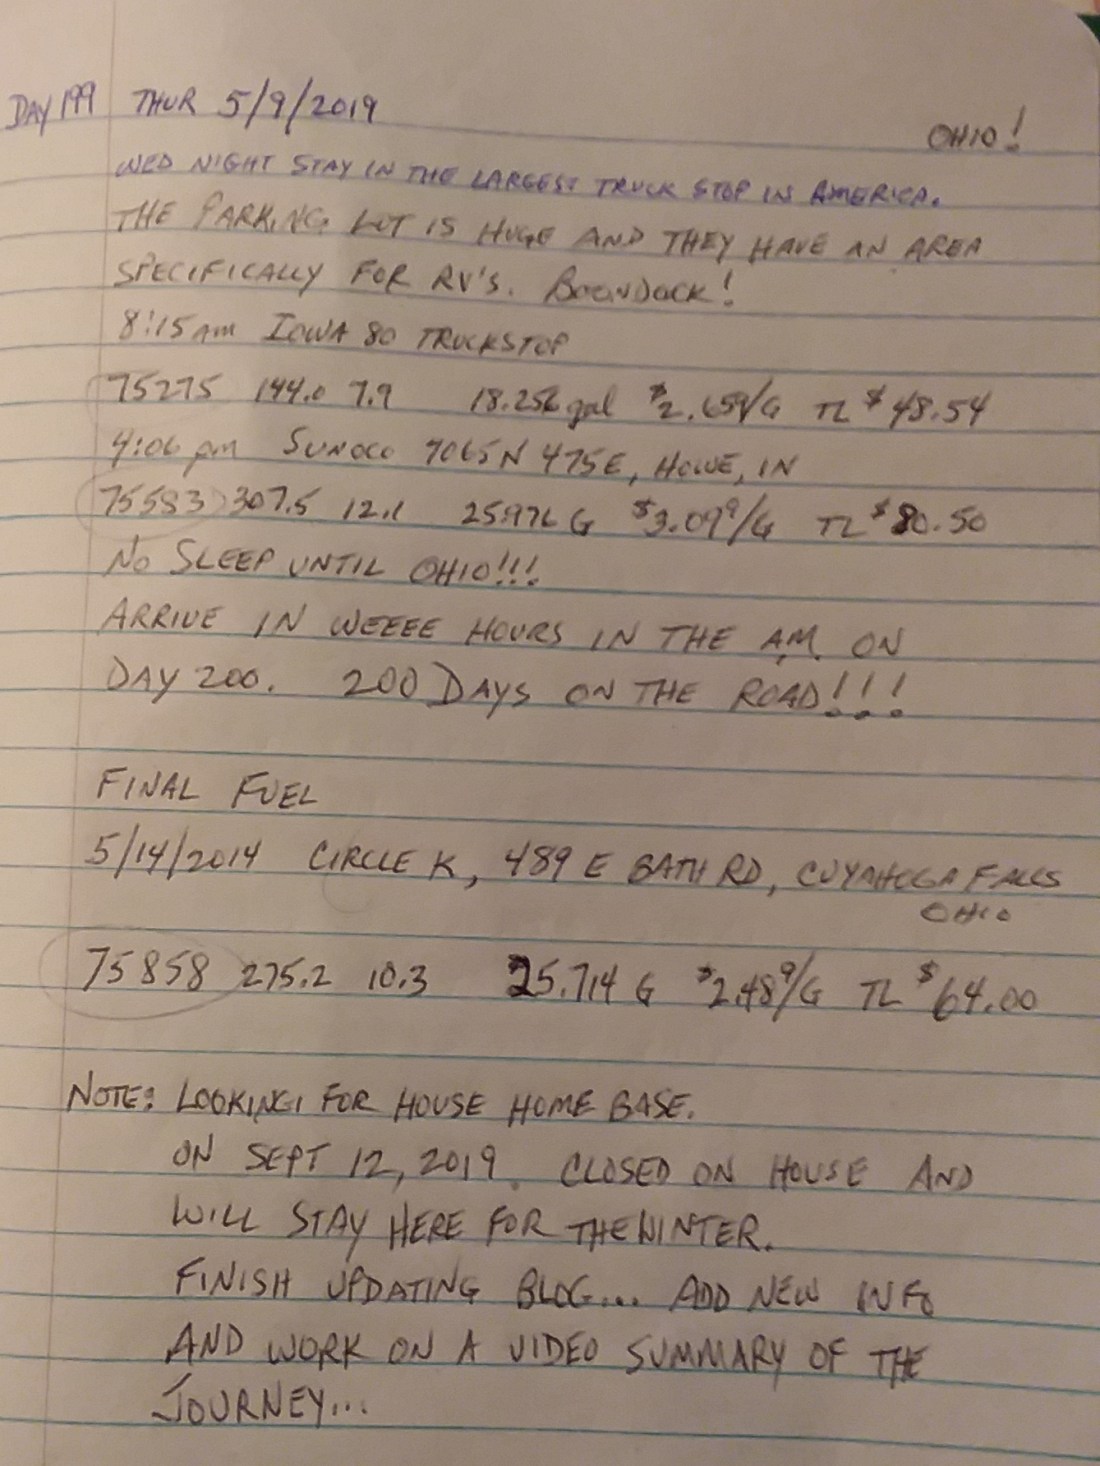 DAY 199 THUR 5/9/2019
OHIO!
WED NIGHT STAY IN THE LARGEST TRUCK STOP IN AMERICA.
THE PARKING LOT IS HUGE AND THEY HAVE AN AREA
SPECIFICALLY FOR RV'S. BOONDOCK!
8:15am IOWA 80 TRUCKSTOP
75275 144.0 7.9 18.256 gal $2.659/G TL $48.54
4:06 pm SUNOCO 7065 N 475E, HOWE, IN
75583 307.5 12.1 25.976 G $3.09⁹/G TL $80.50
NO SLEEP UNTIL OHIO!!!
ARRIVE IN WEEEE HOURS IN THE A.M. ON
DAY 200. 200 DAYS ON THE ROAD!!!
FINAL FUEL
5/14/2014 CIRCLE K, 489 E BATH RD, CUYAHOGA FALLS
OHIO
75858 275.2 10.3 25.714 G $2.48⁹/G TL $64.00
NOTE: LOOKING FOR HOUSE HOME BASE.
ON SEPT 12, 2019. CLOSED ON HOUSE AND
WILL STAY HERE FOR THE WINTER.
FINISH UPDATING BLOG... ADD NEW INFO
AND WORK ON A VIDEO SUMMARY OF THE
JOURNEY...